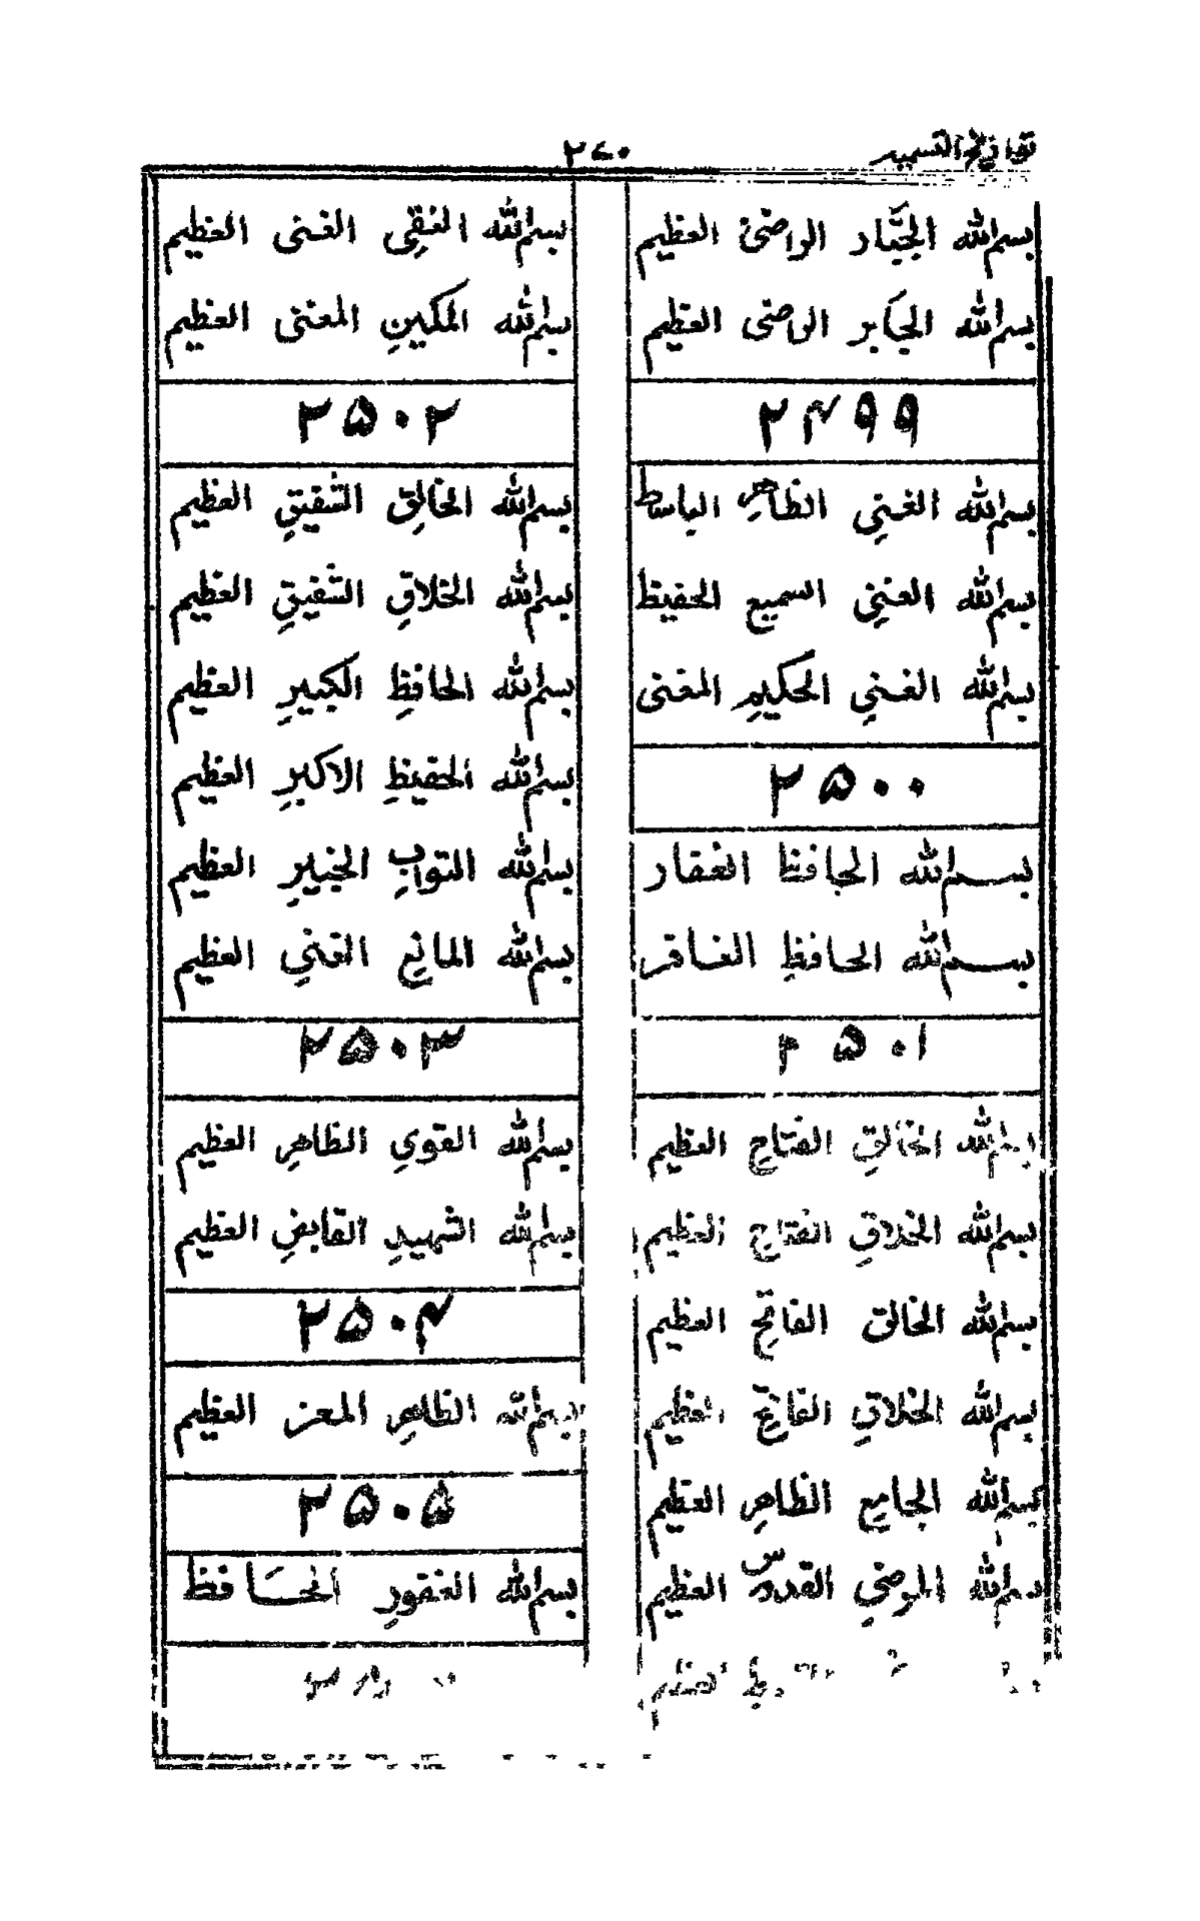 تواریخ التسمیہ
۲۷۰
بسم الله الجبّار الراضی العظیم
بسم الله الجابر الراضی العظیم
۲۴۹۹
بسم الله الغنیِ الظاهرِ الباسط
بسم الله الغنیِ السمیع الحفیظ
بسم الله الغنیِ الحکیمِ المغنی
۲۵۰۰
بسم الله الحافظ الغفار
بسم الله الحافظِ الغافر
۲۵۰۱
بسم الله الخالقِ الفتاحِ العظیم
بسم الله الخلاقِ الفتاحِ العظیم
بسم الله الخالق الفاتحِ العظیم
بسم الله الخلاقِ الفاتحِ العظیم
بسم الله الجامعِ الظاهرِ العظیم
بسم الله الرضیِ القدوس العظیم
العظیم
بسم الله الغنیِ العظیم
بسم الله المکینِ المغنی العظیم
۲۵۰۲
بسم الله الخالقِ الشفیقِ العظیم
بسم الله الخلاقِ الشفیقِ العظیم
بسم الله الحافظِ الکبیرِ العظیم
بسم الله الحفیظِ الاکبرِ العظیم
بسم الله التوابِ الخبیرِ العظیم
بسم الله المانعِ الغنیِ العظیم
۲۵۰۳
بسم الله القویِ الظاهرِ العظیم
بسم الله الشهیدِ القابضِ العظیم
۲۵۰۴
بسم الله الظاهرِ المعز العظیم
۲۵۰۵
بسم الله الغفورِ الحافظ